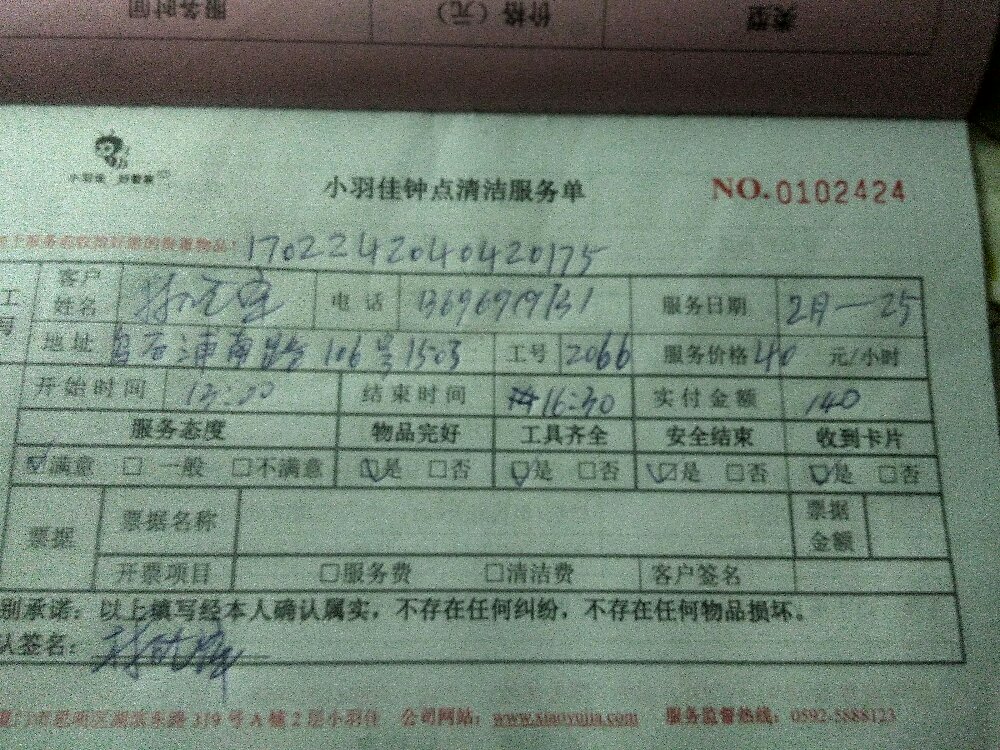 类型 价格（元） 服务时间
小羽佳
小羽佳钟点清洁服务单 NO.0102424
1702242040420175
客户姓名 电话 13696919731 服务日期 2月-25
地址 106号1503 工号 2066 服务价格 40 元/小时
开始时间 13:00 结束时间 16:30 实付金额 140
服务态度 物品完好 工具齐全 安全结束 收到卡片
☑满意 □一般 □不满意 ☑是 □否 ☑是 □否 ☑是 □否 ☑是 □否
票据 票据名称 票据金额
开票项目 □服务费 □清洁费 客户签名
别承诺：以上填写经本人确认属实，不存在任何纠纷，不存在任何物品损坏。
认签名：
319号A幢2层小羽佳 公司网站：www.xiaoyujia.com 服务监督热线：0592-5888123